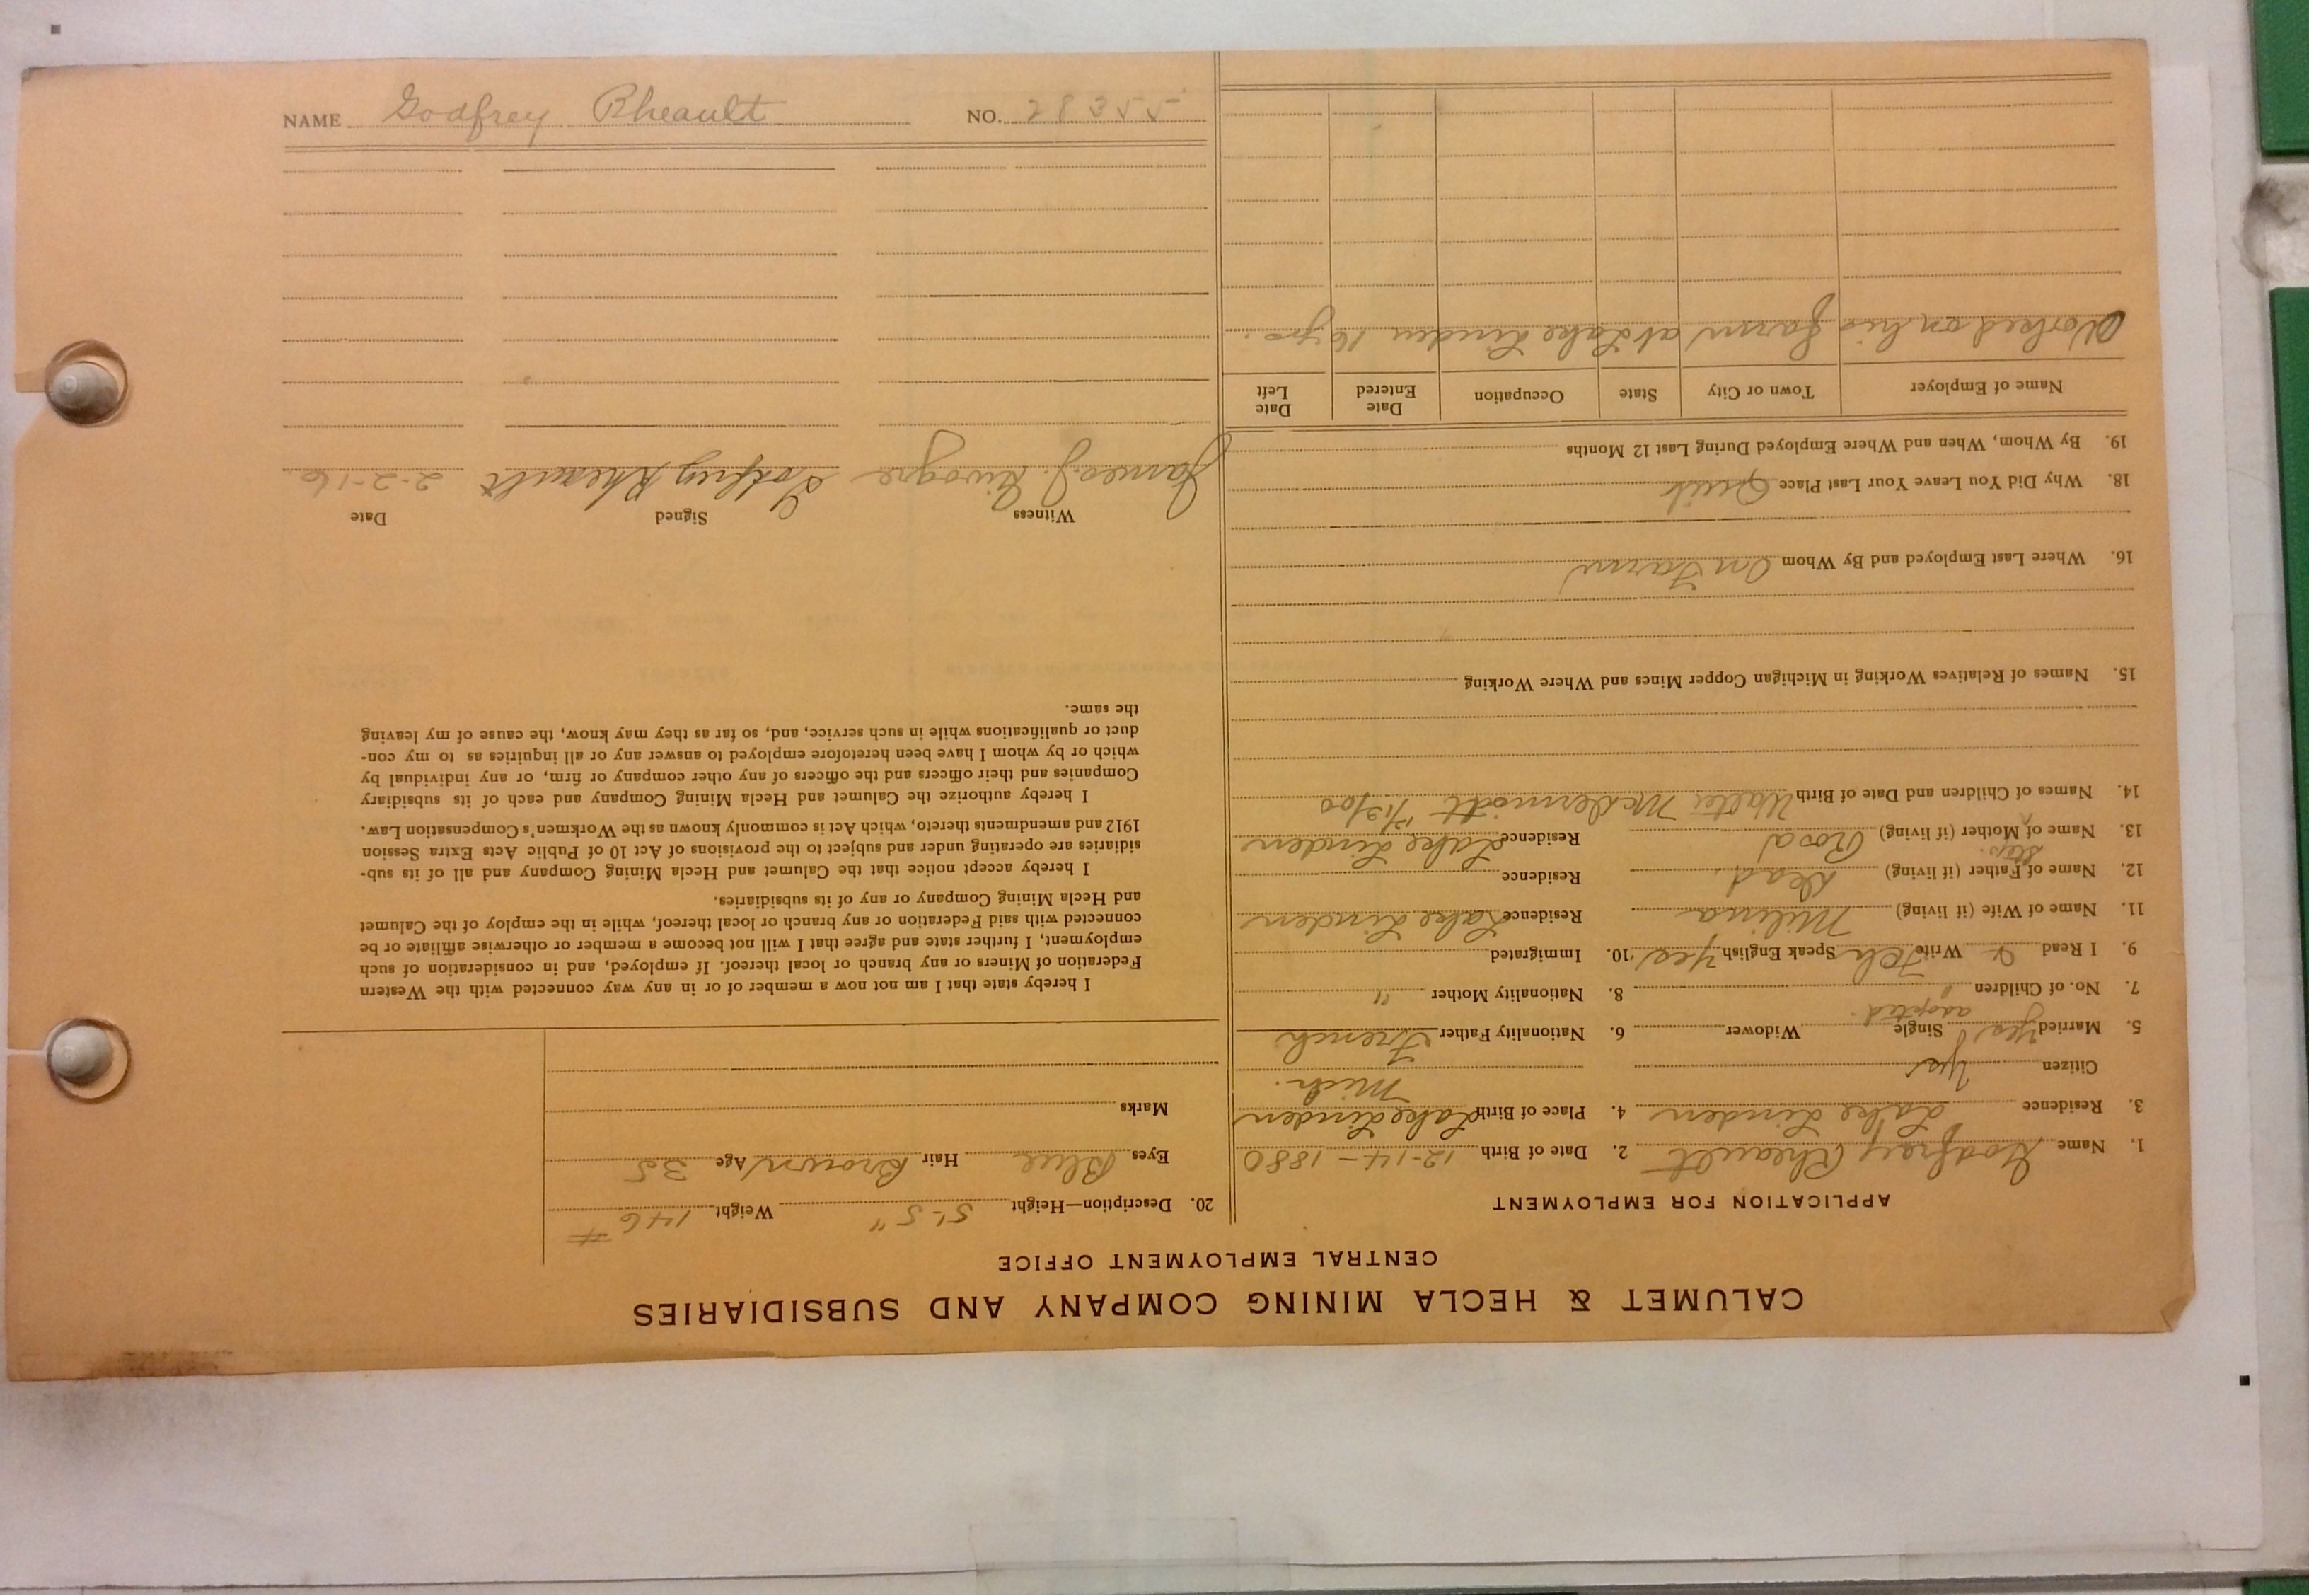 NAME Godfrey Rheault NO. 28355
CALUMET & HECLA MINING COMPANY AND SUBSIDIARIES
CENTRAL EMPLOYMENT OFFICE
APPLICATION FOR EMPLOYMENT
1. Name Godfrey Rheault 2. Date of Birth 12-14-1880
3. Residence Lake Linden 4. Place of Birth Lake Linden
Mich.
Citizen Yes
5. Married Yes Single Widower 6. Nationality Father French
adopted
7. No. of Children 1 8. Nationality Mother "
9. I Read & Write Speak English Yes 10. Immigrated
11. Name of Wife (if living) Milina Residence Lake Linden
12. Name of Father (if living) Dead. Residence
Step.
13. Name of Mother (if living) Rosa Residence Lake Linden
14. Names of Children and Date of Birth Walter McDermott
15. Names of Relatives Working in Michigan Copper Mines and Where Working
16. Where Last Employed and By Whom On Farm
18. Why Did You Leave Your Last Place Quit
19. By Whom, When and Where Employed During Last 12 Months
Name of Employer Town or City State Occupation Date Entered Date Left
Worked on his farm at Lake Linden 16 yrs.
20. Description—Height 5'-5" Weight 146 #
Eyes Blue Hair Brown Age 35
Marks
I hereby state that I am not now a member of or in any way connected with the Western
Federation of Miners or any branch or local thereof. If employed, and in consideration of such
employment, I further state and agree that I will not become a member or otherwise affiliate or be
connected with said Federation or any branch or local thereof, while in the employ of the Calumet
and Hecla Mining Company or any of its subsidiaries.
I hereby accept notice that the Calumet and Hecla Mining Company and all of its sub-
sidiaries are operating under and subject to the provisions of Act 10 of Public Acts Extra Session
1912 and amendments thereto, which Act is commonly known as the Workmen's Compensation Law.
I hereby authorize the Calumet and Hecla Mining Company and each of its subsidiary
Companies and their officers and the officers of any other company or firm, or any individual by
which or by whom I have been heretofore employed to answer any or all inquiries as to my con-
duct or qualifications while in such service, and, so far as they may know, the cause of my leaving
the same.
Witness Signed Date
James J. Godfrey Rheault 2-2-16